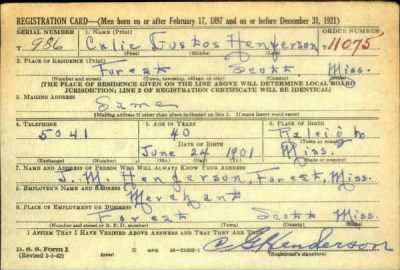 REGISTRATION CARD—(Men born on or after February 17, 1897 and on or before December 31, 1921)
SERIAL NUMBER 1. NAME (Print) ORDER NUMBER
T 986 Henderson 11075
(First) (Middle) (Last)
2. PLACE OF RESIDENCE (Print)
Forest Scott Miss.
(Number and street) (Town, township, village, or city) (County) (State)
[THE PLACE OF RESIDENCE GIVEN ON THE LINE ABOVE WILL DETERMINE LOCAL BOARD
JURISDICTION; LINE 2 OF REGISTRATION CERTIFICATE WILL BE IDENTICAL]
3. MAILING ADDRESS
Same
(Mailing address if other than place indicated on line 2. If same insert word same)
4. TELEPHONE 5. AGE IN YEARS 6. PLACE OF BIRTH
5041 40 Raleigh
DATE OF BIRTH (Town or county)
June 24 1901 Miss.
(Exchange) (Number) (Mo.) (Day) (Yr.) (State or country)
7. NAME AND ADDRESS OF PERSON WHO WILL ALWAYS KNOW YOUR ADDRESS
J. M. Henderson, Forest, Miss.
8. EMPLOYER'S NAME AND ADDRESS
Merchant
9. PLACE OF EMPLOYMENT OR BUSINESS
Forest Scott Miss.
(Number and street or R. F. D. number) (Town) (County) (State)
I AFFIRM THAT I HAVE VERIFIED ABOVE ANSWERS AND THAT THEY ARE TRUE.
D. S. S. Form 1
(Revised 1-1-42) C G Henderson
(Registrant's signature)